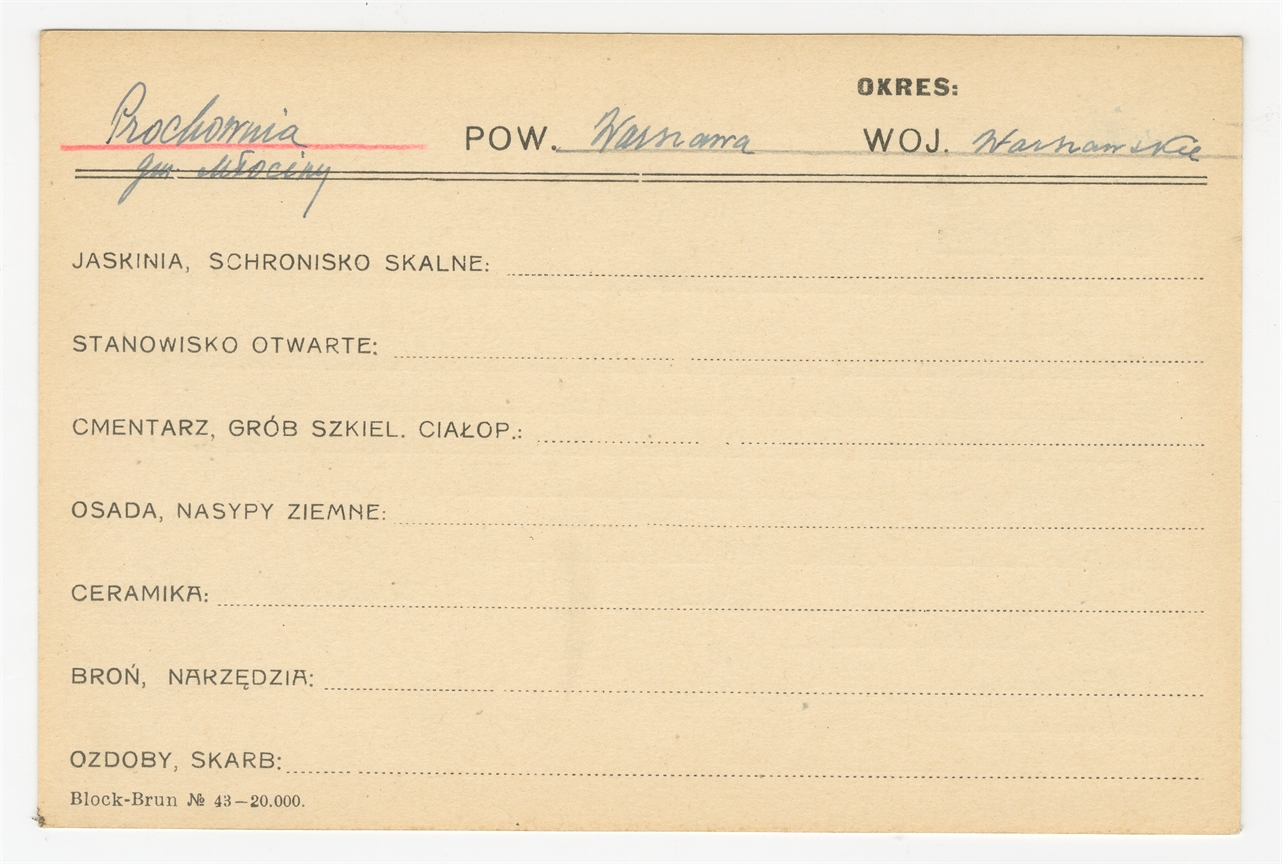 OKRES:
Prochownia POW. Warszawa WOJ. Warszawskie
gm. Młociny
JASKINIA, SCHRONISKO SKALNE:
STANOWISKO OTWARTE:
CMENTARZ, GRÓB SZKIEL. CIAŁOP.:
OSADA, NASYPY ZIEMNE:
CERAMIKA:
BROŃ, NARZĘDZIA:
OZDOBY, SKARB:
Block-Brun № 43—20.000.